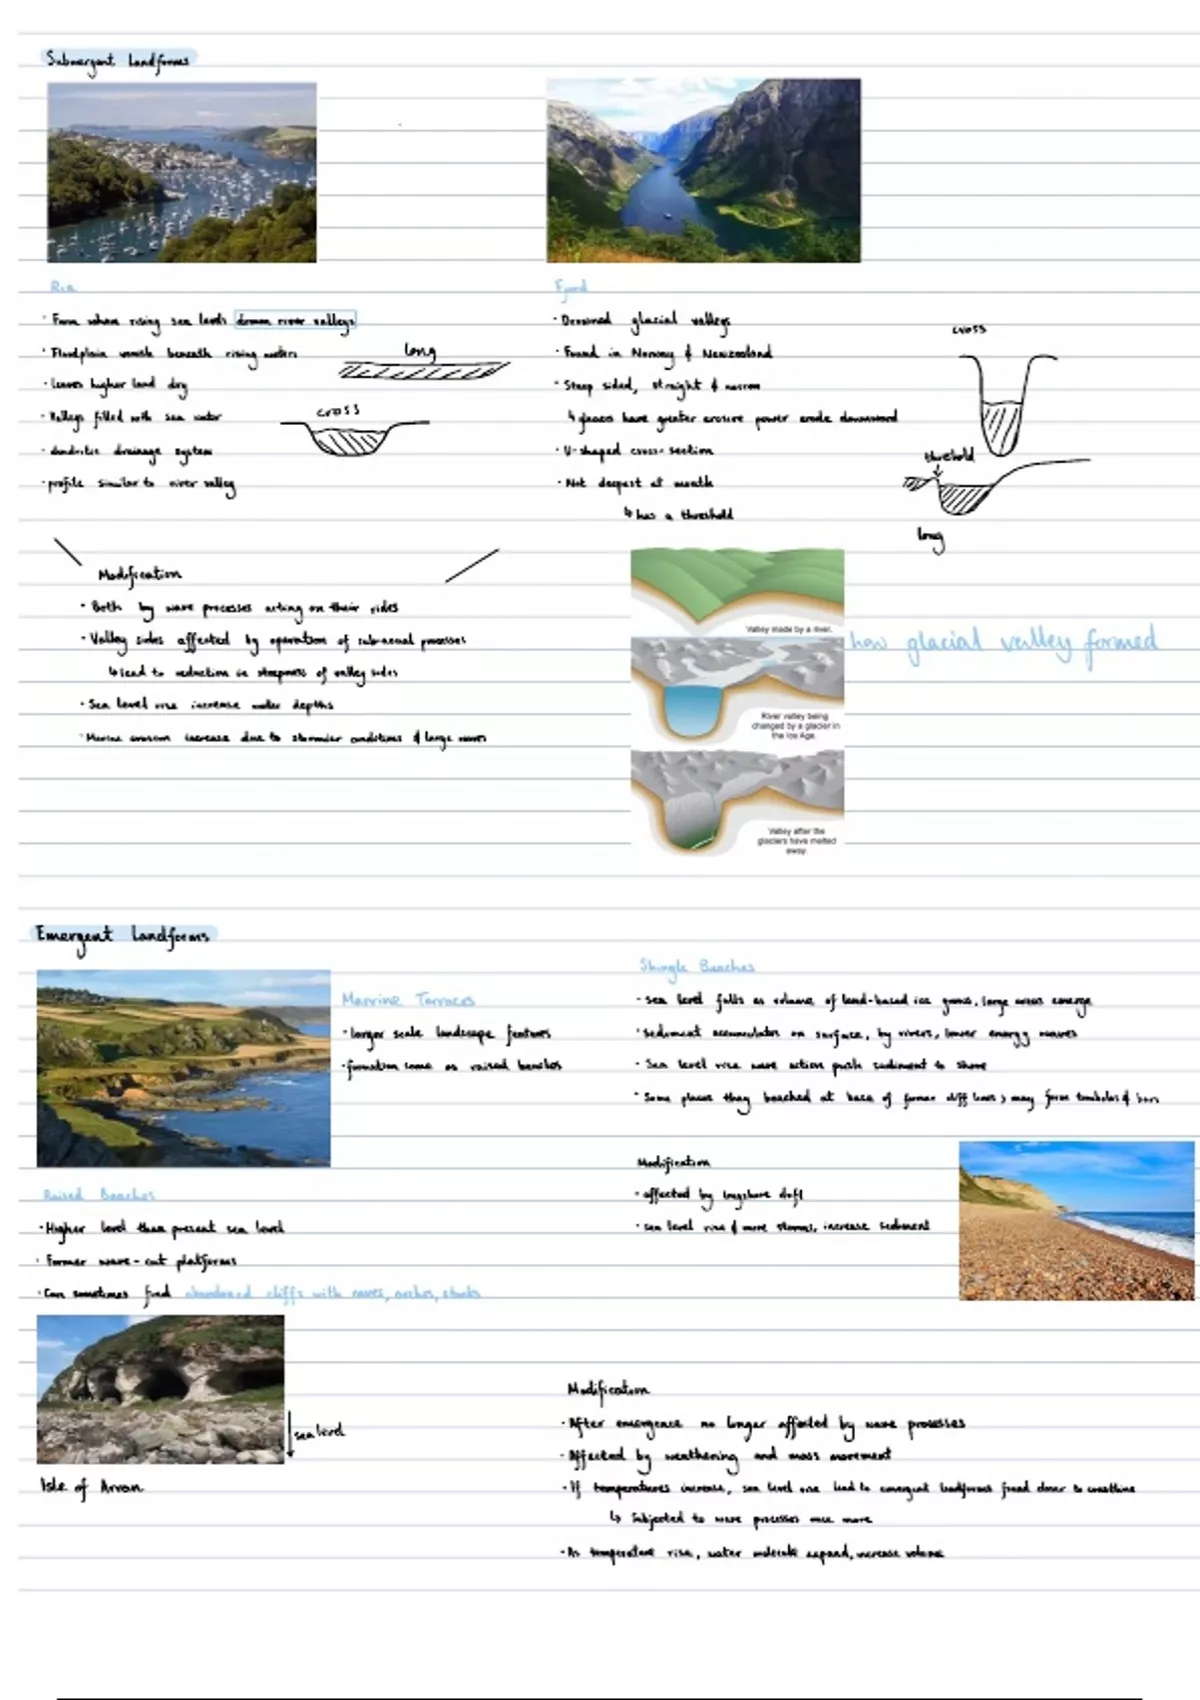 Submergent Landforms
Ria
· Form when rising sea levels drown river valleys
· Floodplain vanish beneath rising waters
· leaves higher land dry
· Valleys filled with sea water
· dendritic drainage system
· profile similar to river valley
long
cross
Fjord
· Drowned glacial valleys
· Found in Norway & Newzealand
· Steep sided, straight & narrow
↳ glaciers have greater erosive power erode downward
· U-shaped cross-section
· Not deepest at mouth
↳ has a threshold
cross
threshold
long
Modification
· Both by wave processes acting on their sides
· Valley sides affected by operation of sub-aerial processes
↳ lead to reduction in steepness of valley sides
· Sea level rise increase water depths
· Marine erosion increase due to stormier conditions & large waves
Valley made by a river.
River valley being
changed by a glacier in
the Ice Age.
Valley after the
glaciers have melted
away.
how glacial valley formed
Emergent Landforms
Marine Terraces
· larger scale landscape features
· formation same as raised beaches
Raised Beaches
· Higher level than present sea level
· Former wave-cut platforms
· Can sometimes find abandoned cliffs with caves, arches, stacks
sea level
Isle of Arran
Shingle Beaches
· sea level falls as volume of land-based ice grows, large areas emerge
· sediment accumulates on surface, by rivers, lower energy waves
· Sea level rise wave action push sediment to shore
· Some places they beached at base of former cliff lines, may form tombolos & bars
Modification
· affected by longshore drift
· sea level rise & more storms, increase sediment
Modification
· After emergence no longer affected by wave processes
· Affected by weathering and mass movement
· If temperatures increase, sea level rise lead to emergent landforms found closer to coastline
↳ Subjected to wave processes once more
· As temperature rise, water molecule expand, increase volume